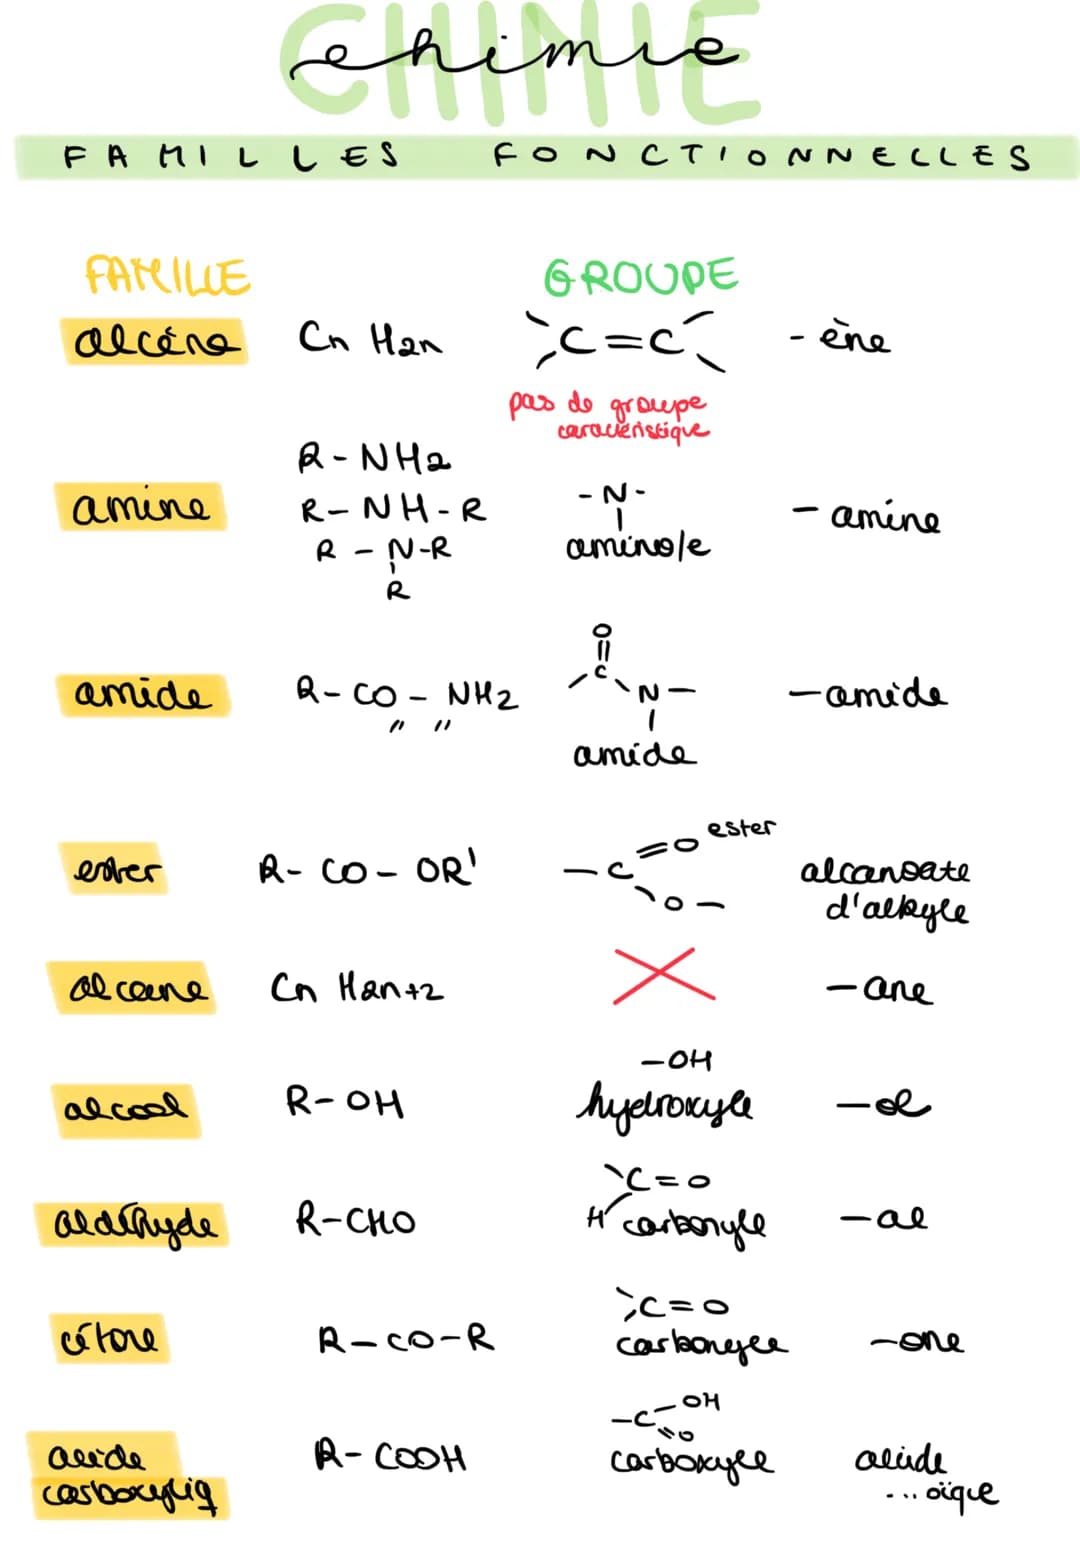 CHIMIE
chimie
FAMILLES FONCTIONNELLES
FAMILLE GROUPE
alcène Cn H2n C=C - ène
pas de groupe
caractéristique
R-NH2
amine R-NH-R -N- - amine
R-N-R amino/e
R
O
amide R-CO-NH2 C N- -amide
" "
amide
ester
ester R-CO-OR' -C=O alcanoate
O- d'alkyle
alcane Cn H2n+2 -ane
-OH
alcool R-OH hydroxyle -ol
C=O
aldéhyde R-CHO H carbonyle -al
C=O
cétone R-CO-R carbonyle -one
-C-OH
=O
acide R-COOH carboxyle acide
carboxyliq ...oïque